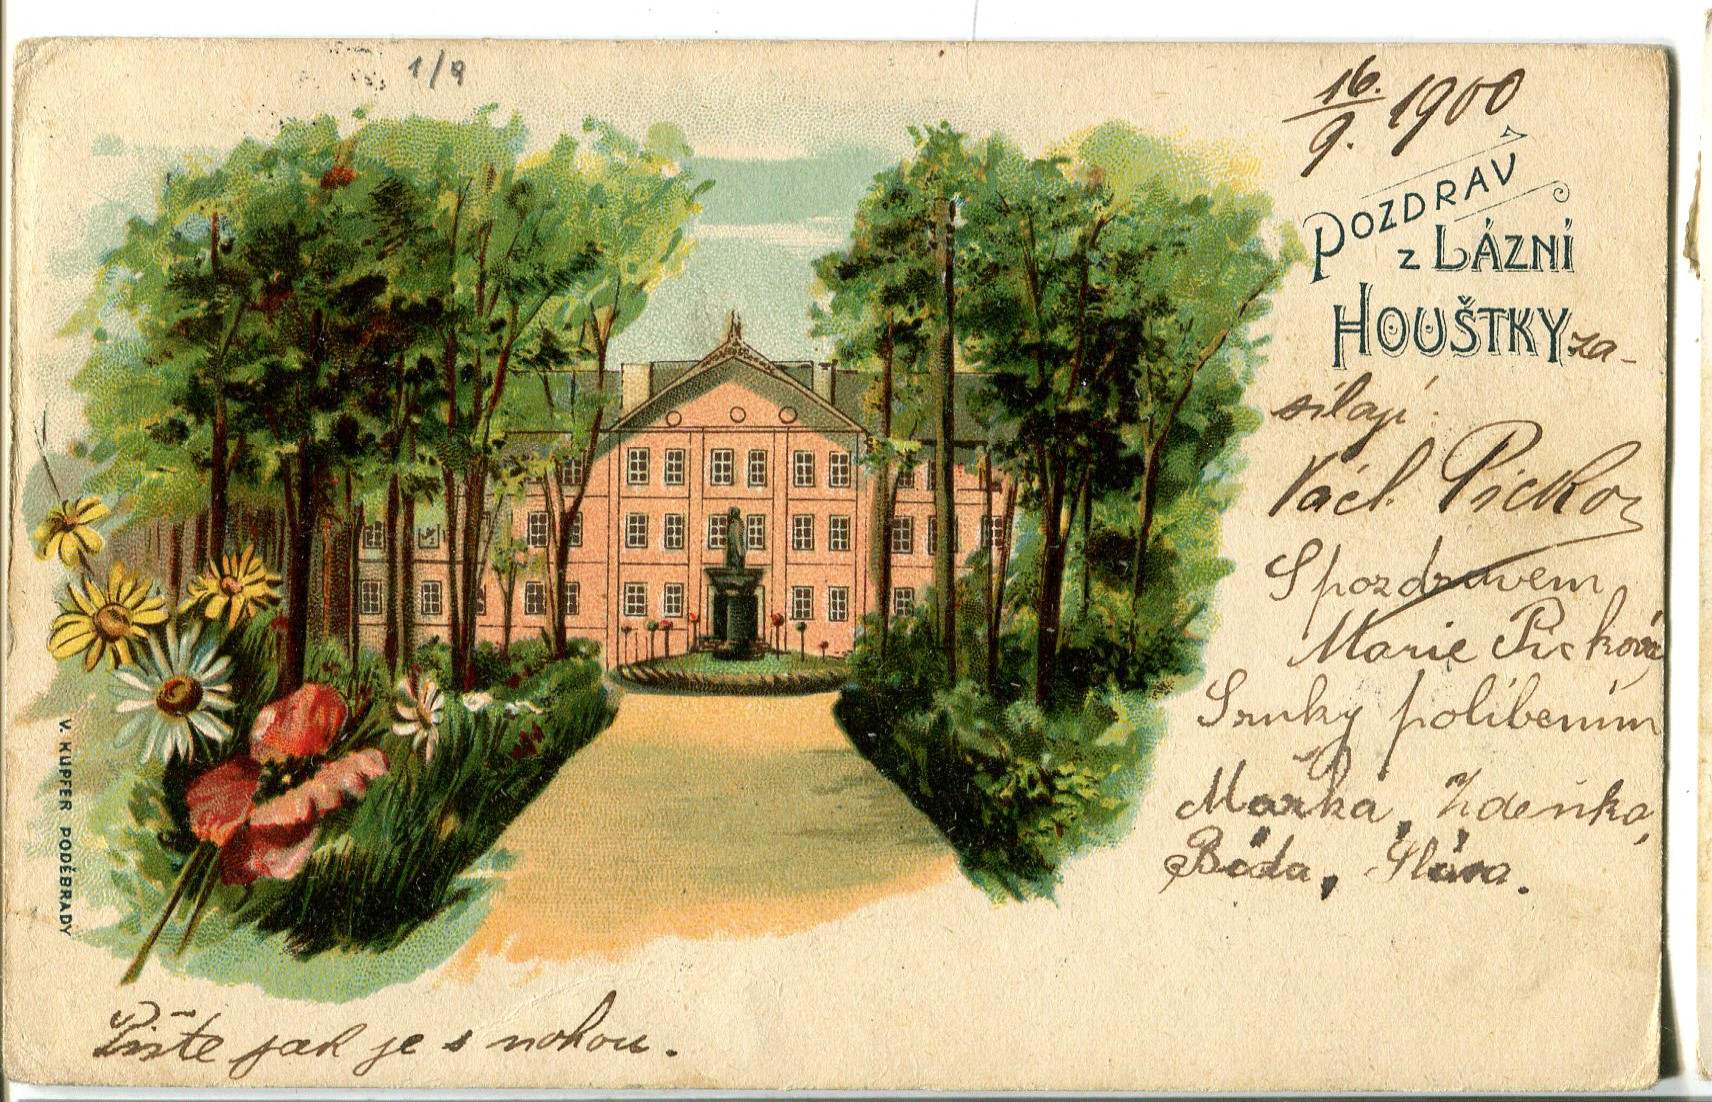 1/9
16./9. 1900
POZDRAV
z LÁZNÍ
HOUŠTKY za-
sílají:
Václ. Picko
S pozdravem
Marie Picková
S ruky políbením
Mařka, Zdeňka,
Božda, Slávа.
V. KUPFER PODĚBRADY
Pište jak je s nohou.